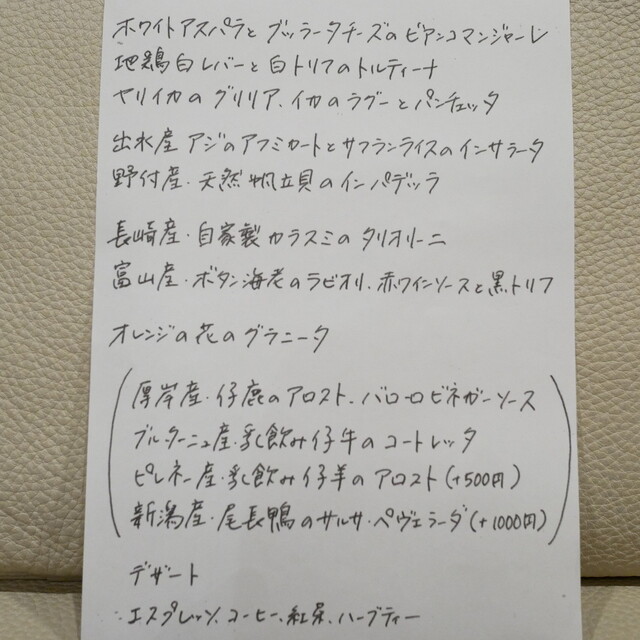 ホワイトアスパラとブッラータチーズのビアンコマンジャーレ
地鶏白レバーと白トリフのトルティーナ
ヤリイカのグリリア、イカのラグーとパンチェッタ
出水産アジのアフミカートとサフランライスのインサラータ
野付産・天然帆立貝のインパデッラ
長崎産・自家製カラスミのタリオリーニ
富山産・ボタン海老のラビオリ、赤ワインソースと黒トリフ
オレンジの花のグラニータ
厚岸産・仔鹿のアロスト、バローロビネガーソース
ブルターニュ産・乳飲み仔牛のコートレッタ
ピレネー産・乳飲み仔羊のアロスト(+500円)
新潟産・尾長鴨のサルサ・ペヴェラーダ(+1000円)
デザート
エスプレッソ、コーヒー、紅茶、ハーブティー